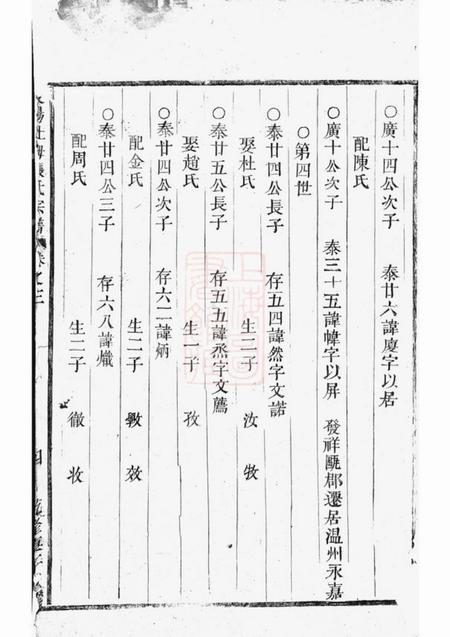 ○廣十四公次子 泰廿六諱廈字以居
配陳氏
○廣十公次子 泰三十五諱幃字以屏 發祥甌郡遷居温州永嘉
○第四世
○泰廿四公長子 存五四諱然字文諾
娶杜氏 生二子 汝 牧
○泰廿五公長子 存五五諱烝字文薦
娶趙氏 生一子 孜
○泰廿四公次子 存六二諱炳
配金氏 生二子 敩 效
○泰廿四公三子 存六八諱熾
配周氏 生二子 徹 收
張氏宗譜 卷之三
四